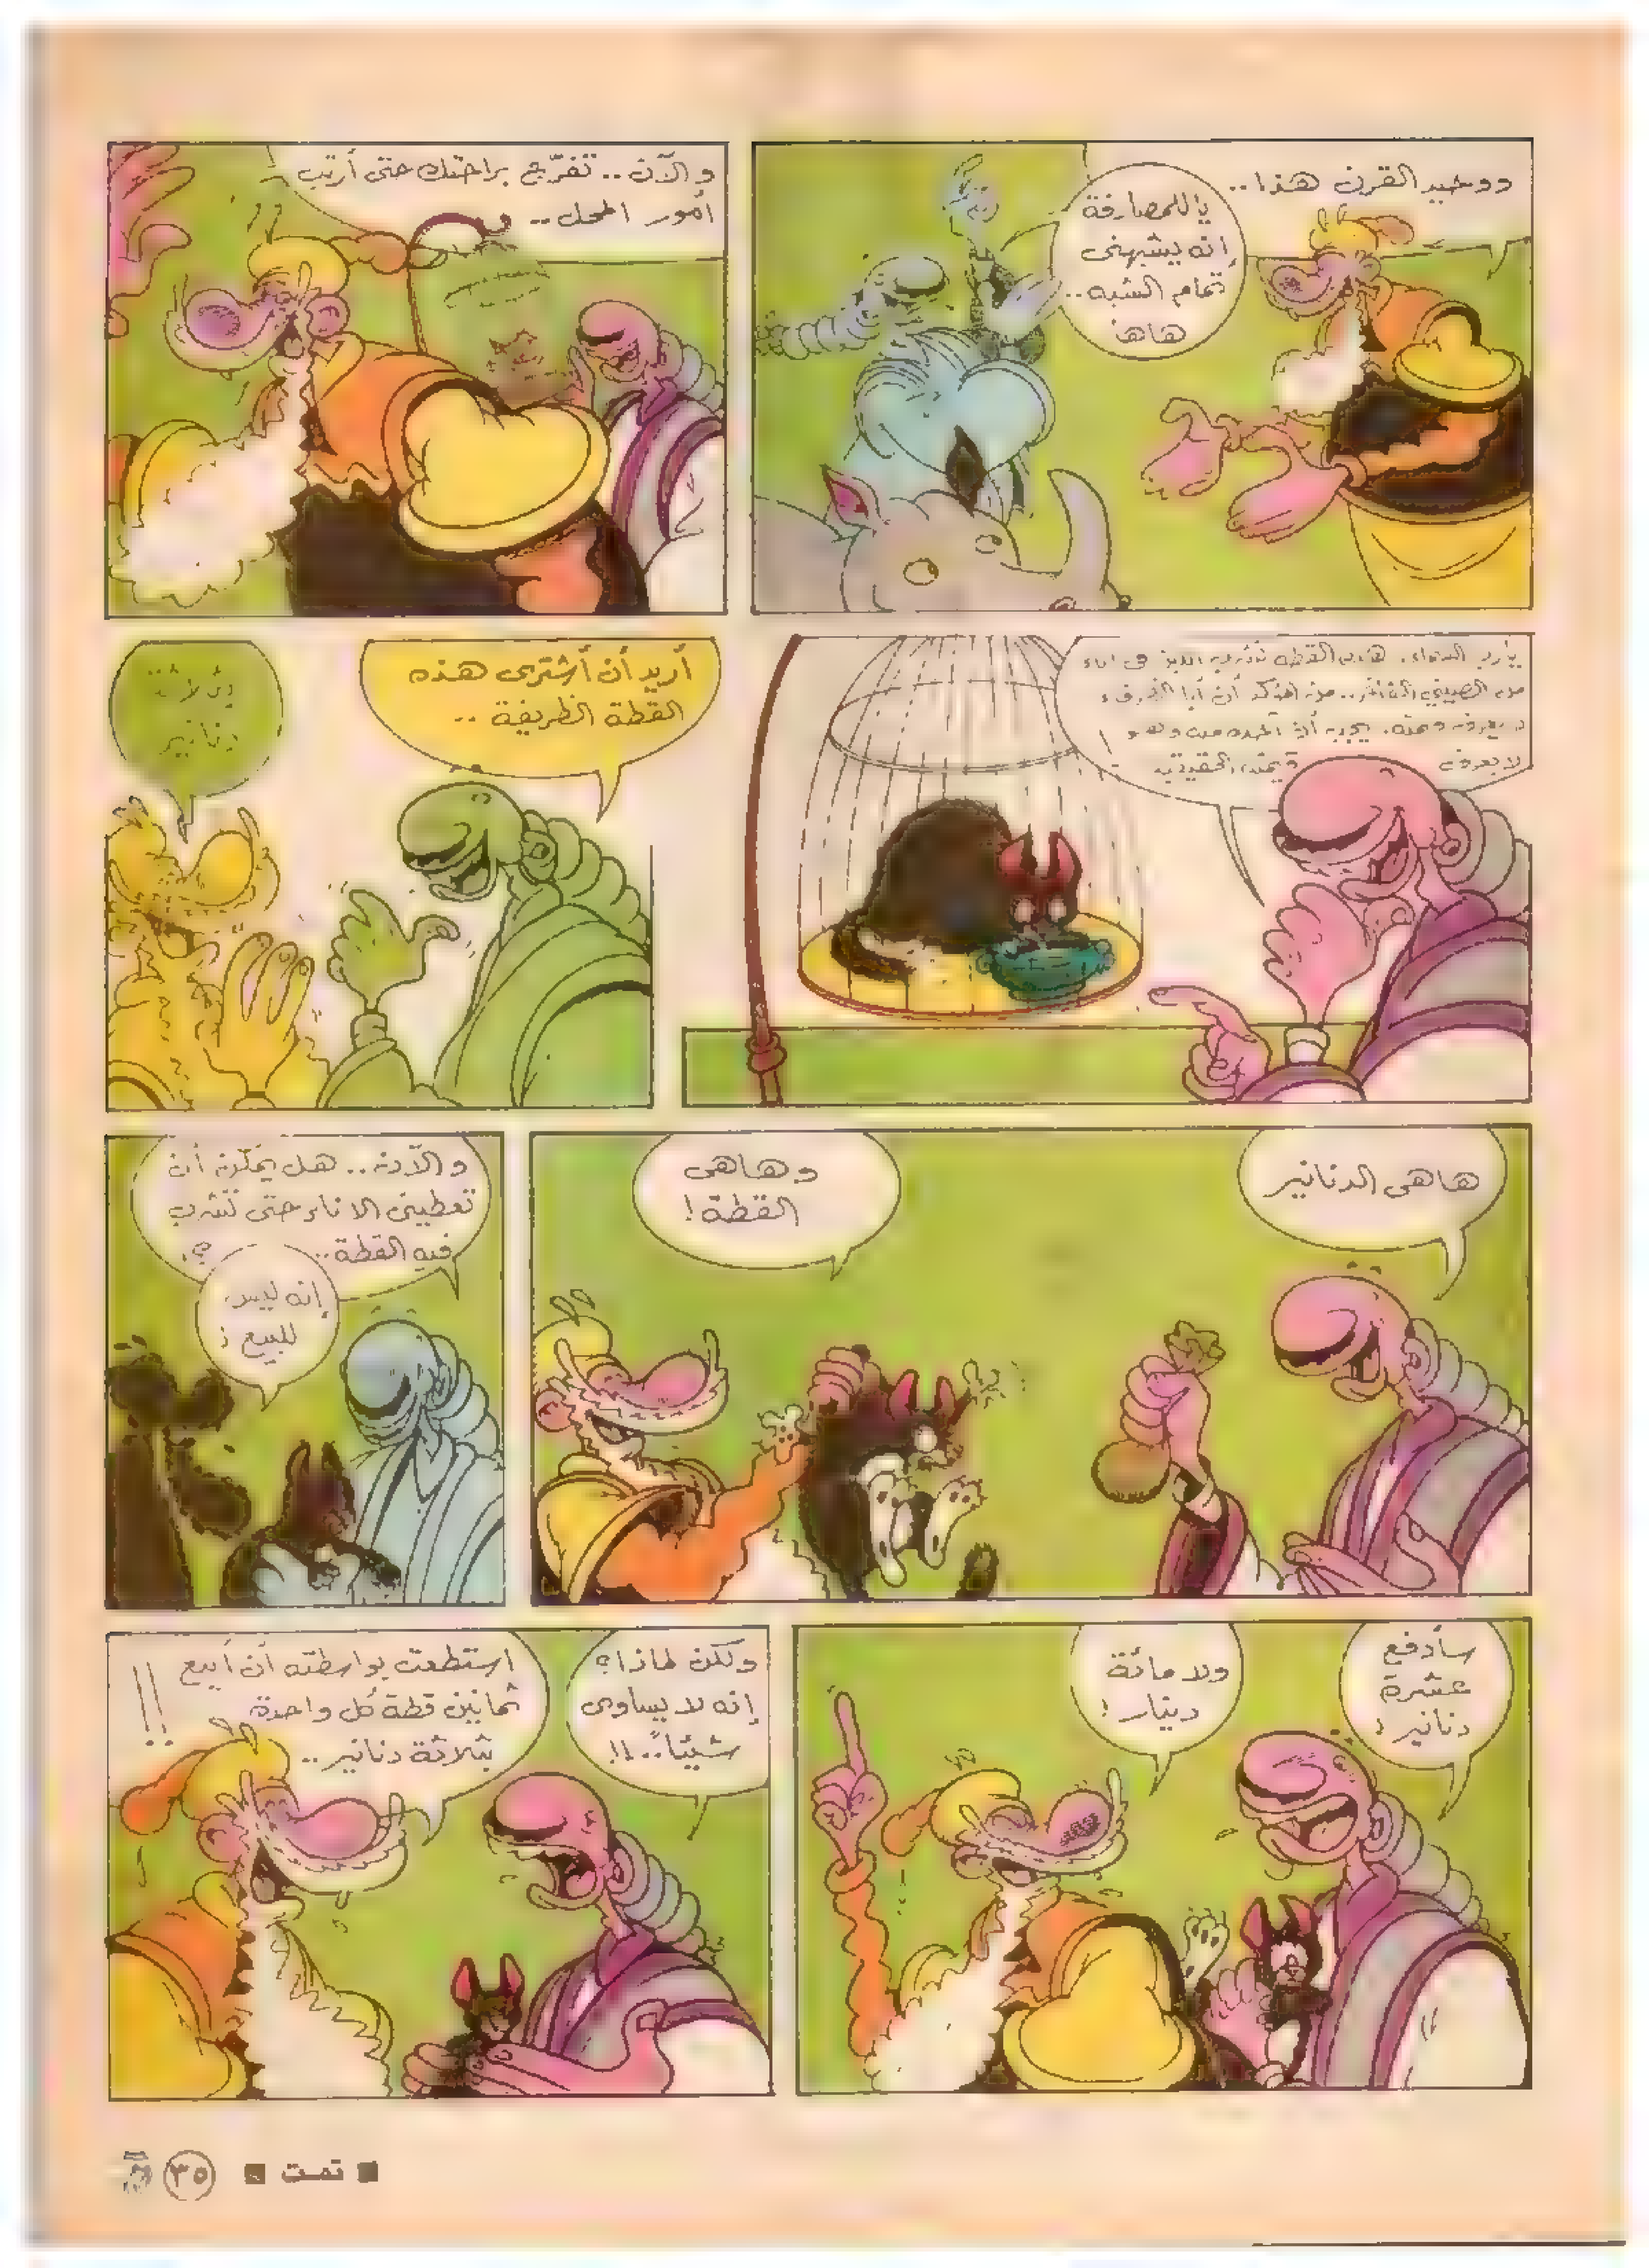 ووحيد القرن هذا..
يا للمصادفة
إنه يشبهني
تمام الشبه..
هاها
والآن.. تفرّج براحتك حتى أرتب
أمور المحل..
يارب السماء. هذه القطة تشرب اللبن في اناء
من الصيني الفاخر.. من المؤكد أن أبا
لا يعرف قيمته. يجب أن آخذه منه وهو
لا يعرف قيمته الحقيقية!
أريد أن أشتري هذه
القطة الظريفة..
بثلاثة
دنانير
هاهى الدنانير
وهاهى
القطة!
والآن.. هل يمكن أن
تعطيني الاناء حتى تشرب
فيه القطة..؟
إنه ليس
للبيع!
سأدفع
عشرة
دنانير!
ولا مائة
دينار!
ولكن لماذا؟
إنه لا يساوى
شيئاً..!!
استطعت بواسطته أن أبيع
ثمانين قطة كل واحدة
بثلاثة دنانير..
!!
■ تمت ■
٣٥